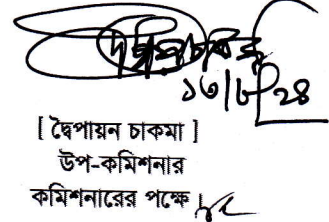 ১৩/৮/২৪
[ দ্বৈপায়ন চাকমা ]
উপ-কমিশনার
কমিশনারের পক্ষে